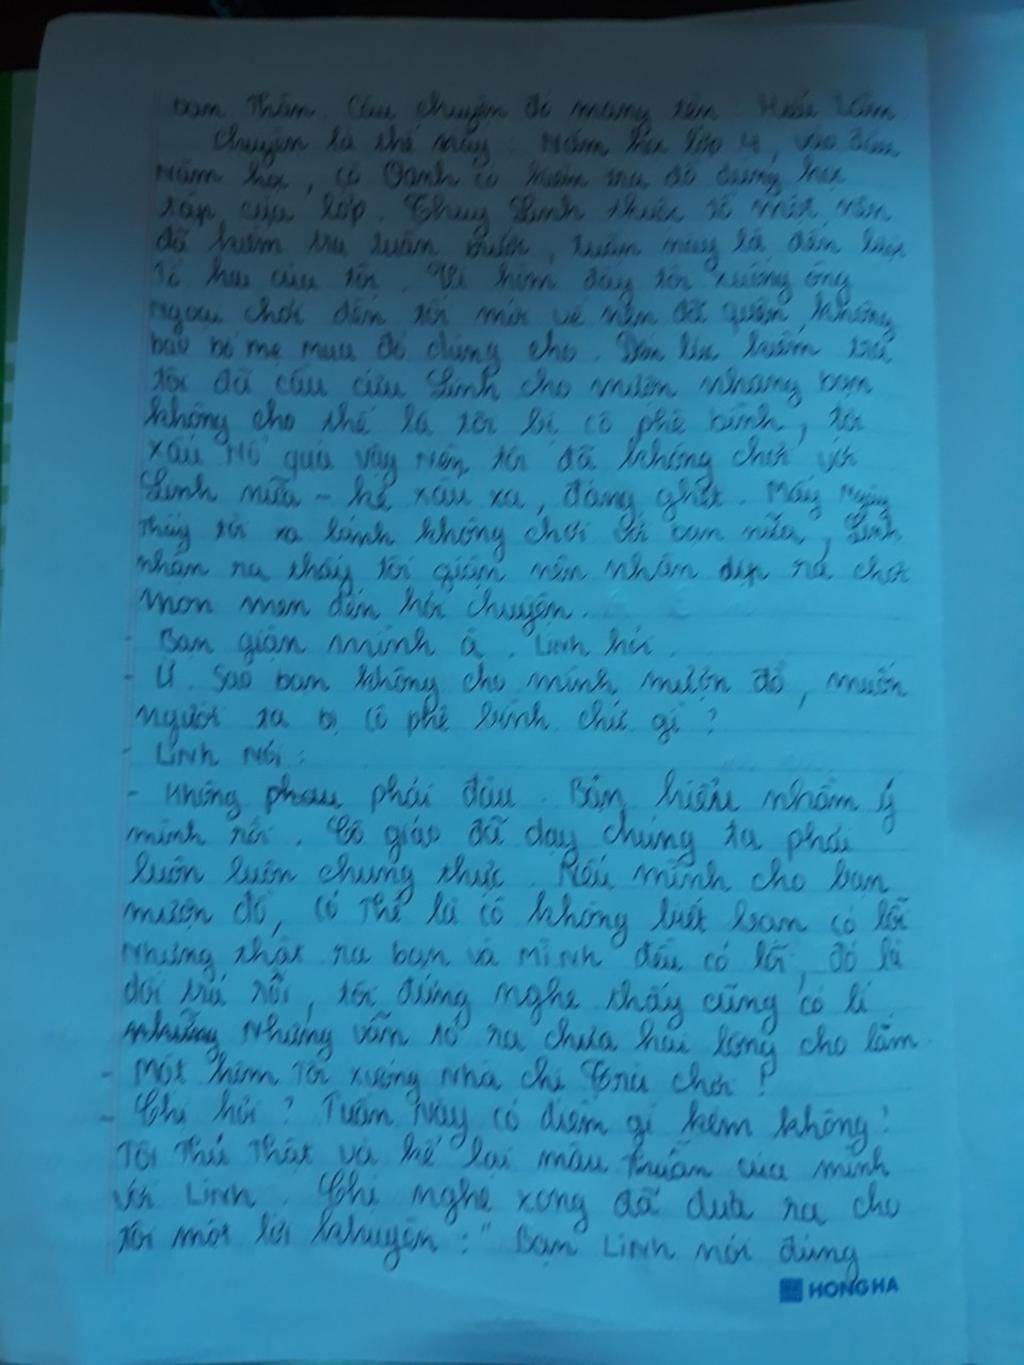 bạn thân. Câu chuyện đó mang tên: Hiểu lầm
Chuyện là thế này: Năm học lớp 4, vào đầu
năm học, cô Oanh có kiểm tra đồ dùng học
tập của lớp. Thuỳ Linh thuộc tổ một nên
đã kiểm tra tuần trước, tuần này là đến lượt
tổ hai của tôi. Vì hôm đấy tôi xuống ông
ngoại chơi đến tối mới về nên đã quên không
bảo bố mẹ mua đồ dùng cho. Đến lúc kiểm tra
tôi đã cầu cứu Linh cho mượn nhưng bạn
không cho thế là tôi bị cô phê bình, tôi
xấu hổ quá vậy nên tôi đã không chơi với
Linh nữa - kẻ xấu xa, đáng ghét. Mấy ngày
thấy tôi xa lánh không chơi với bạn nữa, Linh
nhận ra thấy tôi giận nên nhân dịp ra chơi
mon men đến hỏi chuyện.
- Bạn giận mình à. Linh hỏi.
- Ừ. Sao bạn không cho mình mượn đồ, muốn
người ta bị cô phê bình chứ gì?
- Linh nói:
- Không phải đâu. Bạn hiểu nhầm ý
mình rồi. Cô giáo đã dạy chúng ta phải
luôn luôn chung thực. Nếu mình cho bạn
mượn đồ, có thể là cô không biết bạn có lỗi
nhưng thật ra bạn và mình đều có lỗi, đó là
dối trá rồi, tôi đứng nghe thấy cũng có lí
nhưng vẫn tỏ ra chưa hài lòng cho lắm.
- Một hôm tôi xuống nhà chị Trà chơi!
- Chị hỏi? Tuần này có điểm gì kém không?
Tôi thú thật và kể lại mâu thuẫn của mình
với Linh. Chị nghe xong đã đưa ra cho
tôi một lời khuyên: "Bạn Linh nói đúng
HONG HA